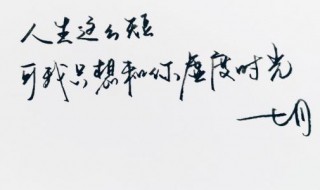 人生这么短
可我只想和你虚度时光
——七月